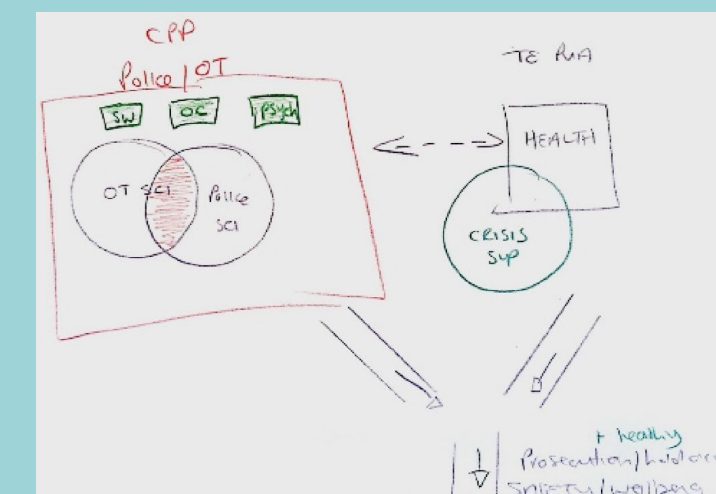 CPP
Police / OT
SW OC Psych
OT SCI
Police
SCI
TE PUA
HEALTH
CRISIS
SUP
+ healing
Prosecution/hold
SAFETY/wellbeing